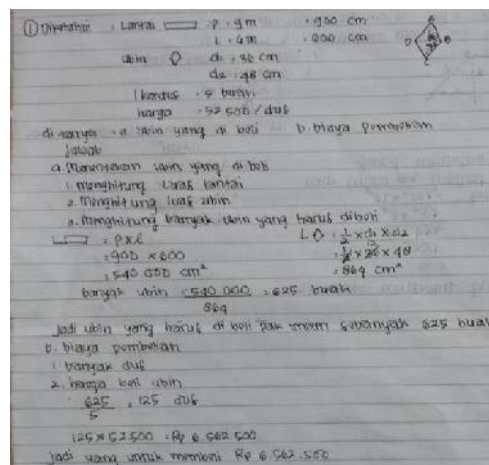 ① Diketahui : Lantai ▭ : P = 9 m = 900 cm
L = 6 m = 600 cm
ubin ◊ d1 = 36 cm
d2 = 48 cm
1 kardus = 5 buah
harga = 52.500 / dus
A
D B
C
di tanya : a. ubin yang di beli b. biaya pembelian
Jawab
a. Menentukan ubin yang di beli
1. menghitung Luas lantai
2. menghitung luas ubin
3. menghitung banyak ubin yang harus dibeli
L ▭ = P x l L ◊ = 1/2 x d1 x d2
= 900 x 600 = 1/2 x 36 x 48
= 540 000 cm² = 864 cm²
banyak ubin 540.000 / 864 = 625 buah
Jadi ubin yang harus di beli pak imam sebanyak 625 buah
b. biaya pembelian
1. banyak dus
2. harga beli ubin
625 / 5 = 125 dus
125 x 52.500 = Rp 6.562.500
Jadi uang untuk membeli Rp 6.562.500